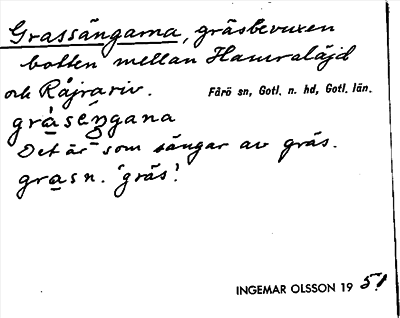 Grassängarna, gräsbevuxen
botten mellan Hamraläjd
och Råjrariv. Fårö sn, Gotl. n. hd, Gotl. län.
gràséngana
Det är som sängar av gräs.
grasn. 'gräs'.
INGEMAR OLSSON 1951